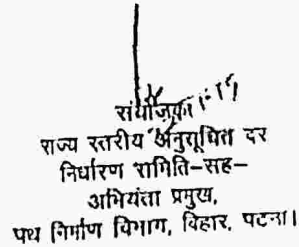 संयोजक
राज्य स्तरीय अनुसूचित दर
निर्धारण समिति-सह-
अभियंता प्रमुख,
पथ निर्माण विभाग, बिहार, पटना।